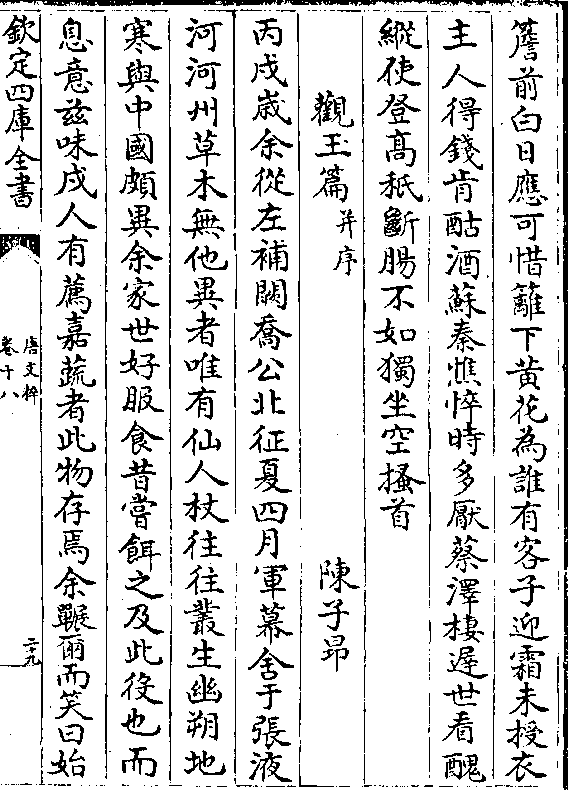 簷前白日應可惜籬下黄花為誰有客子迎霜未授衣
主人得錢肯酤酒蘇秦憔悴時多厭蔡澤棲遲世看醜
縱使登髙秪斷腸不如獨坐空搔首
觀玉篇并序 陳子昂
丙戌嵗余從左補闕喬公北征夏四月軍幕舍于張液
河河州草木無他異者唯有仙人杖往往叢生幽朔地
寒與中國頗異余家世好服食昔嘗餌之及此役也而
息意兹味戍人有薦嘉蔬者此物存焉余囅爾而笑曰始
欽定四庫全書
唐文粹
卷十八
二十九